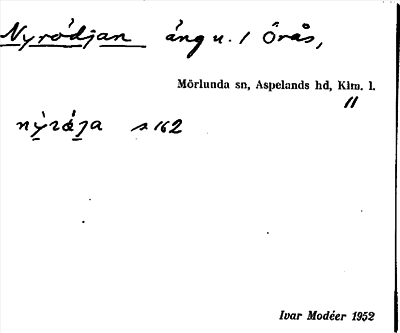 Nyrödjan äng u. 1 Örås,
Mörlunda sn, Aspelands hd, Klm. l.
11
s 162
Ivar Modéer 1952